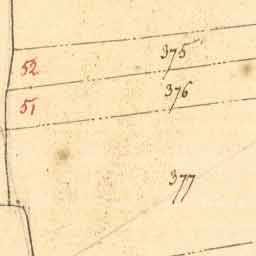 375
52
376
51
377